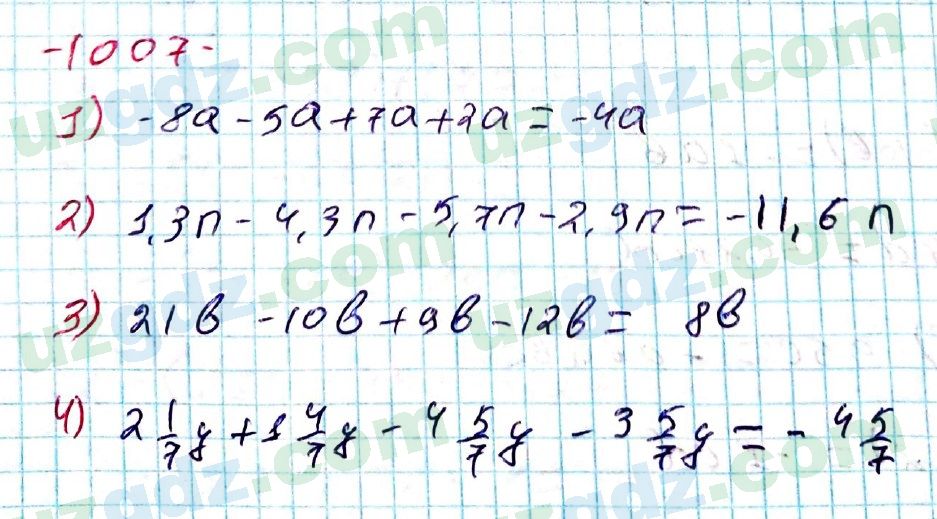 -1007-
1) -8a - 5a + 7a + 2a = -4a
2) 1,3n - 4,3n - 5,7n - 2,9n = -11,6n
3) 21b - 10b + 9b - 12b = 8b
4) 2 1/7 y + 1 4/7 y - 4 5/7 y - 3 5/7 y = - 4 5/7
uzgdz.com